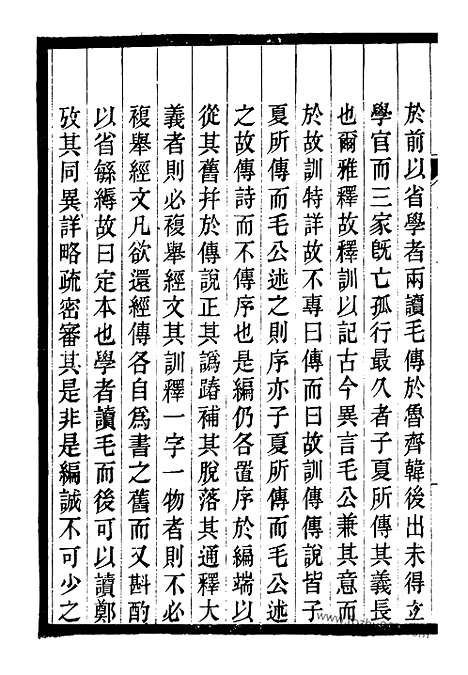 於前以省學者兩讀毛傳於魯齊韓後出未得立
學官而三家旣亡孤行最久者子夏所傳其義長
也爾雅釋故釋訓以記古今異言毛公兼其意而
於故訓特詳故不專曰傳而曰故訓傳傳說皆子
夏所傳而毛公述之則序亦子夏所傳而毛公述
之故傳詩而不傳序也是編仍各置序於編端以
從其舊幷於傳說正其譌踳補其脫落其通釋大
義者則必複舉經文其訓釋一字一物者則不必
複舉經文凡欲還經傳各自爲書之舊而又斟酌
以省繇縟故曰定本也學者讀毛而後可以讀鄭
攷其同異詳略疏密審其是非是編誠不可少之